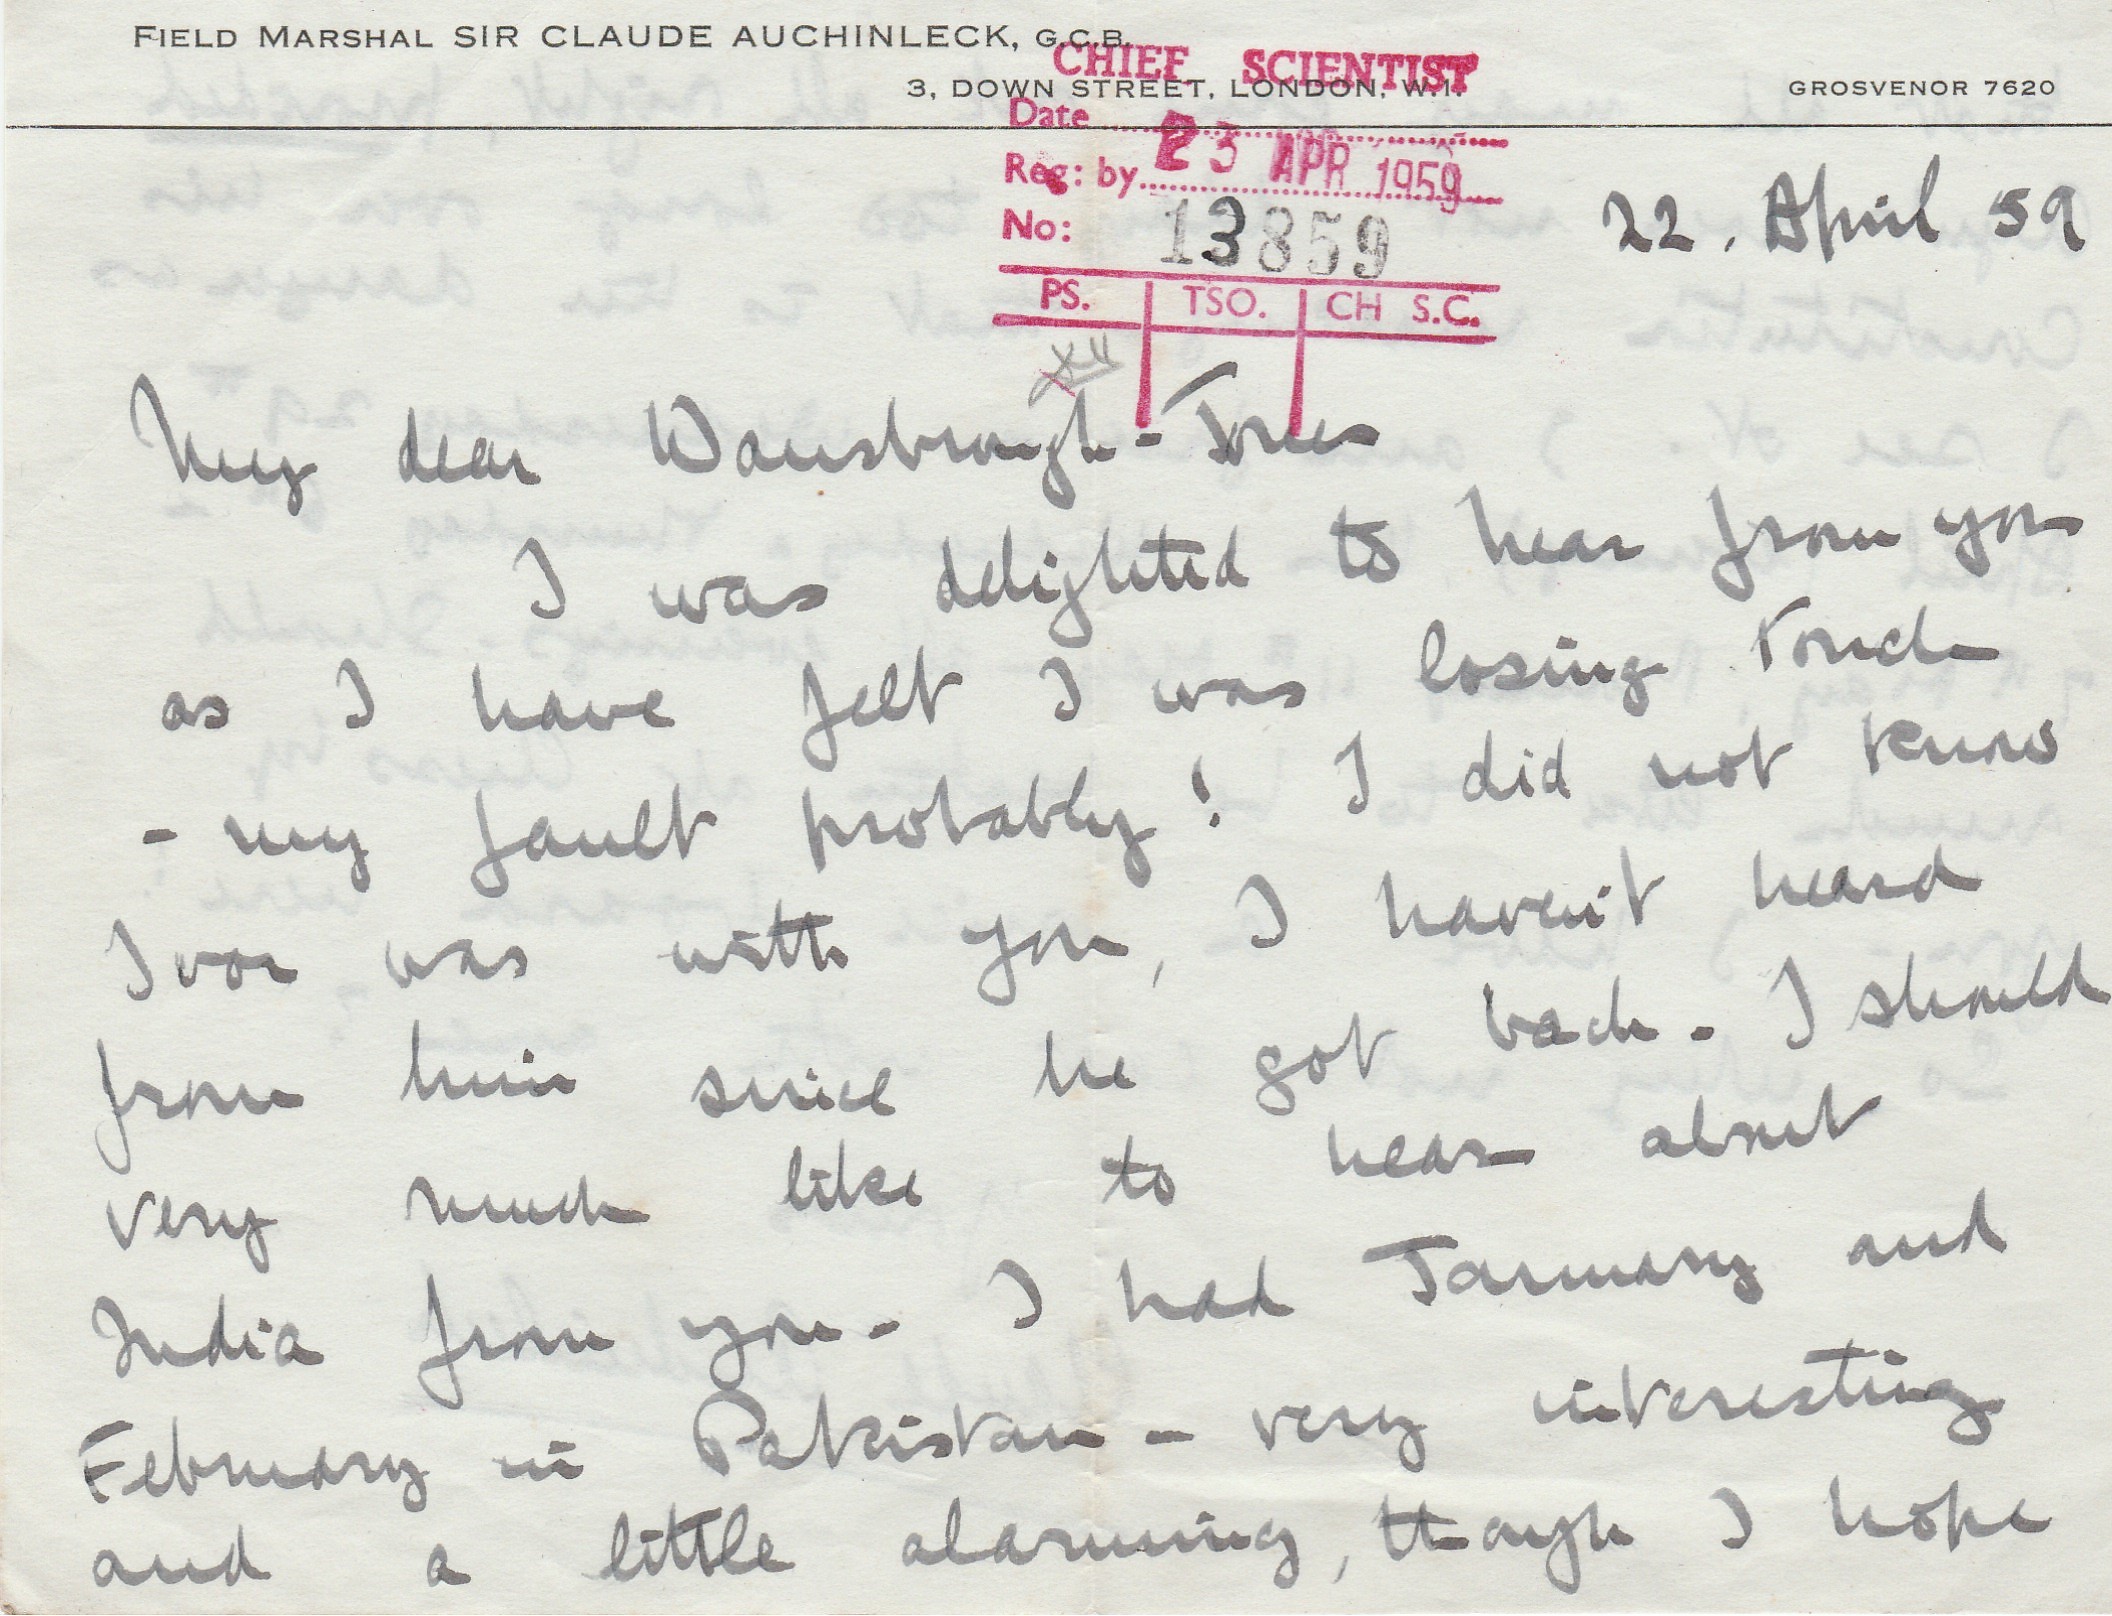 FIELD MARSHAL SIR CLAUDE AUCHINLECK, G.C.B.
3, DOWN STREET, LONDON, W.1.
GROSVENOR 7620
CHIEF SCIENTIST
Date
23 APR 1959
Reg: by
No: 13859
PS. TSO. CH S.C.
22. April 59
My dear Wansbrough-Jones
I was delighted to hear from you
as I have felt I was losing touch
- my fault probably! I did not know
Ivor was with you, I haven't heard
from him since he got back. I should
very much like to hear about
India from you. I had January and
February in Pakistan - very interesting
and a little alarming, though I hope